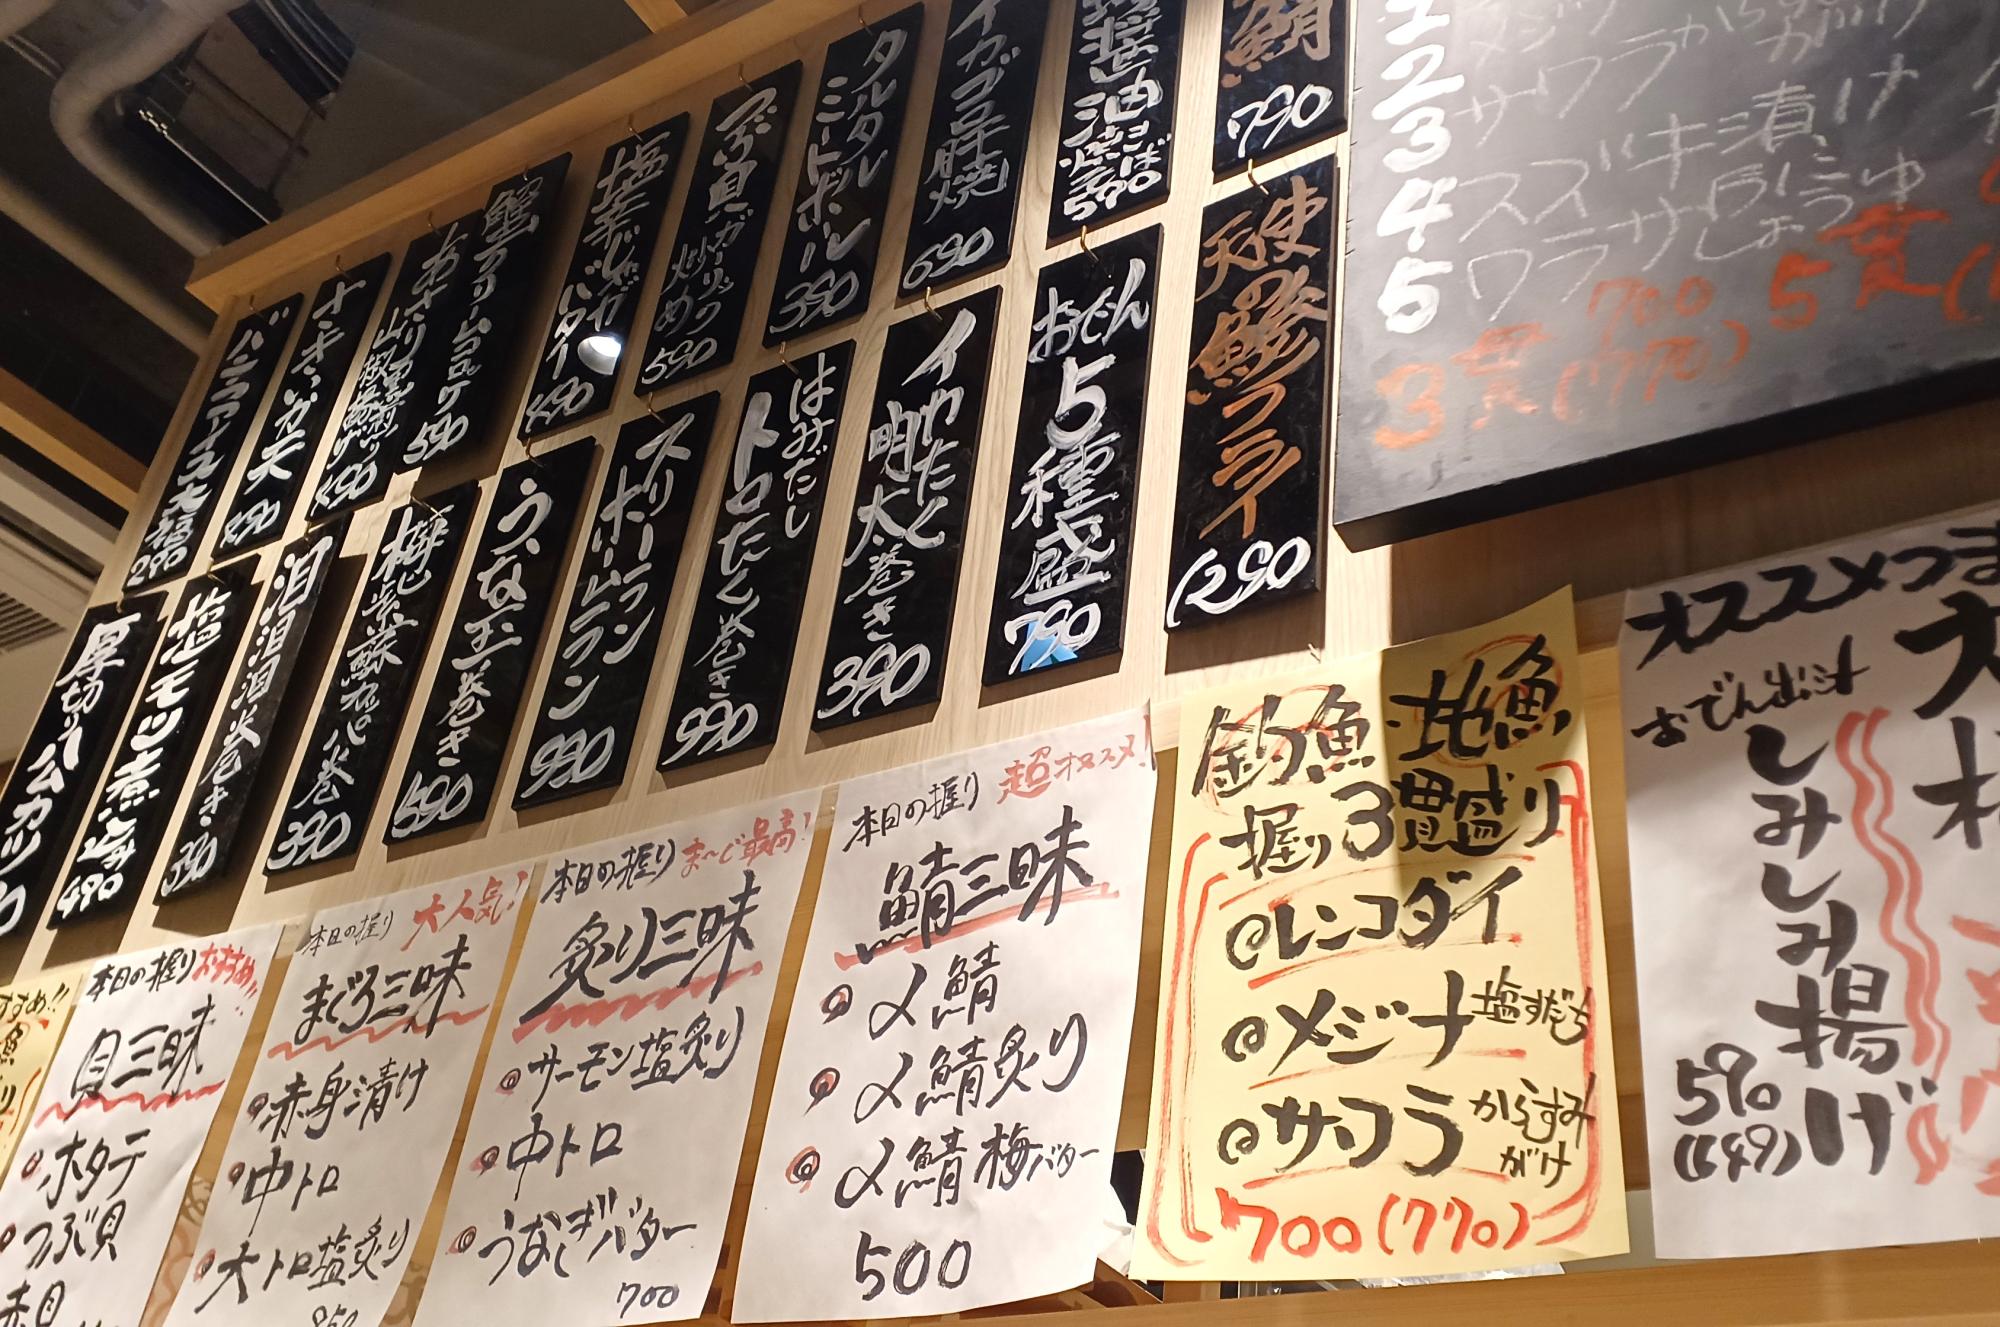 バニラアイス大福
290
さきいか天
490
あさり
山椒
490
蟹クリームコロッケ
590
塩辛じゃがバター
490
つぶ貝ガーリック
炒め
590
タルタル
ミートボール
390
イカゴロ肝焼
690
醤油焼そば
590
鯖
790
厚切りハムカツ
塩モツ煮込み
490
泪泪泪巻き
390
梅しそ紫蘇カッパ巻
390
うな玉巻き
590
スリーフン
ホームラン
990
はみだし
トロたく巻き
990
イカたく
明太巻き
390
おでん
5種盛
790
天使の鯵フライ
290
1 メジナ
2 サワラからすみがけ
3 スズキ漬け
4
5 ワラサ
3貫 700 (770) 5貫
本日の握り おすすめ!!
貝三味
ホタテ
つぶ貝
赤貝
本日の握り 大人気!
まぐろ三味
赤身漬け
中トロ
大トロ塩炙り
850
本日の握り ま〜じ最高!
炙り三味
サーモン塩炙り
中トロ
うなぎバター
700
本日の握り 超オススメ!
鯖三昧
〆鯖
〆鯖炙り
〆鯖梅バター
500
釣魚・地魚
握り3貫盛り
@レンコダイ
@メジナ 塩すだち
@サワラ からすみがけ
700 (770)
オススメつま
おでん出汁
しみしみ揚げ
590
(649)